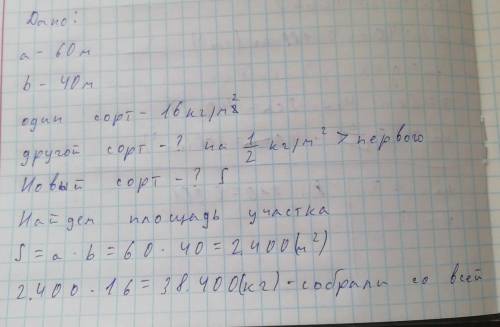 Дано:
a - 60 м
b - 40 м
один сорт - 16 кг/м²
другой сорт - ? на 1/2 кг/м² > первого
Новый сорт - ? S
Найдем площадь участка
S = a · b = 60 · 40 = 2.400 (м²)
2.400 · 16 = 38.400 (кг) - собрали со всей